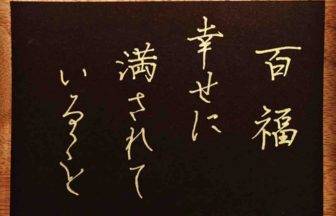 百福
幸せに
満されて
いること